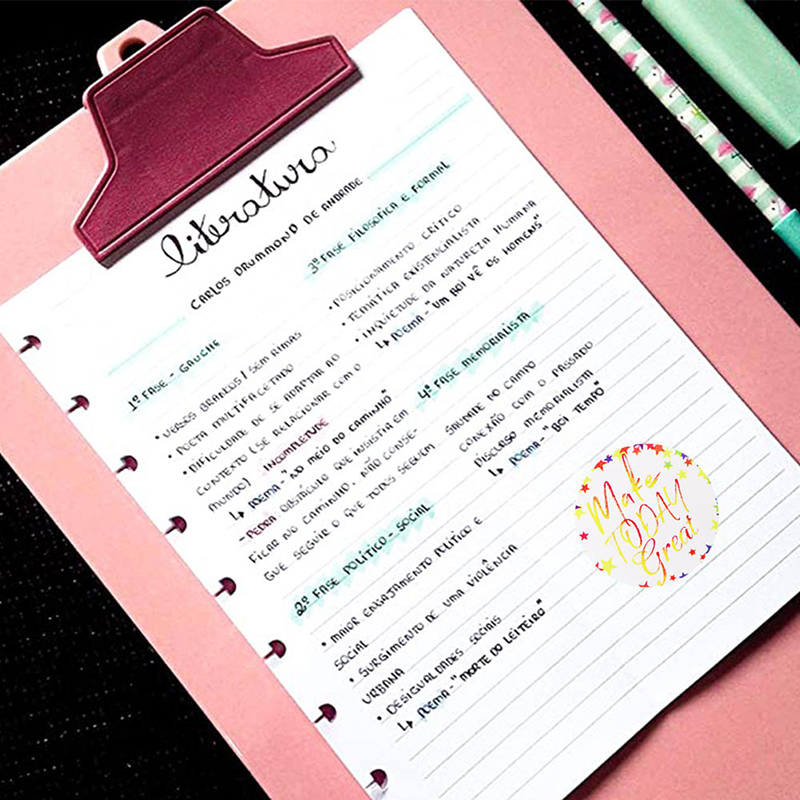 literatura
CARLOS DRUMMOND DE ANDRADE
1ª FASE - GAUCHE
• VERSOS BRANCOS / SEM RIMAS
• POETA MULTIFACETADO
• DIFICULDADE DE SE ADAPTAR AO
CONTEXTO (SE RELACIONAR COM O
MUNDO) INCOMPLETUDE
↳ POEMA - "NO MEIO DO CAMINHO"
- PEDRA OBSTÁCULO QUE INSISTIA EM
FICAR NO CAMINHO, NÃO CONSE-
GUE SEGUIR O QUE TODOS SEGUEM
2ª FASE POLÍTICO - SOCIAL
• MAIOR ENGAJAMENTO POLÍTICO E
SOCIAL
• SURGIMENTO DE UMA VIOLÊNCIA
URBANA
• DESIGUALDADES SOCIAIS
↳ POEMA - "MORTE DO LEITEIRO"
3ª FASE FILOSÓFICA E FORMAL
• POSICIONAMENTO CRÍTICO
• TEMÁTICA EXISTENCIALISTA
• INQUIETUDE DA NATUREZA HUMANA
↳ POEMA - "UM BOI VÊ OS HOMENS"
4ª FASE MEMORIALISTA
SAUDADE NO CAMPO
CONEXÃO COM O PASSADO
DISCURSO MEMORIALISTA
↳ POEMA - "BOI TEMPO"
Make
TODAY
Great